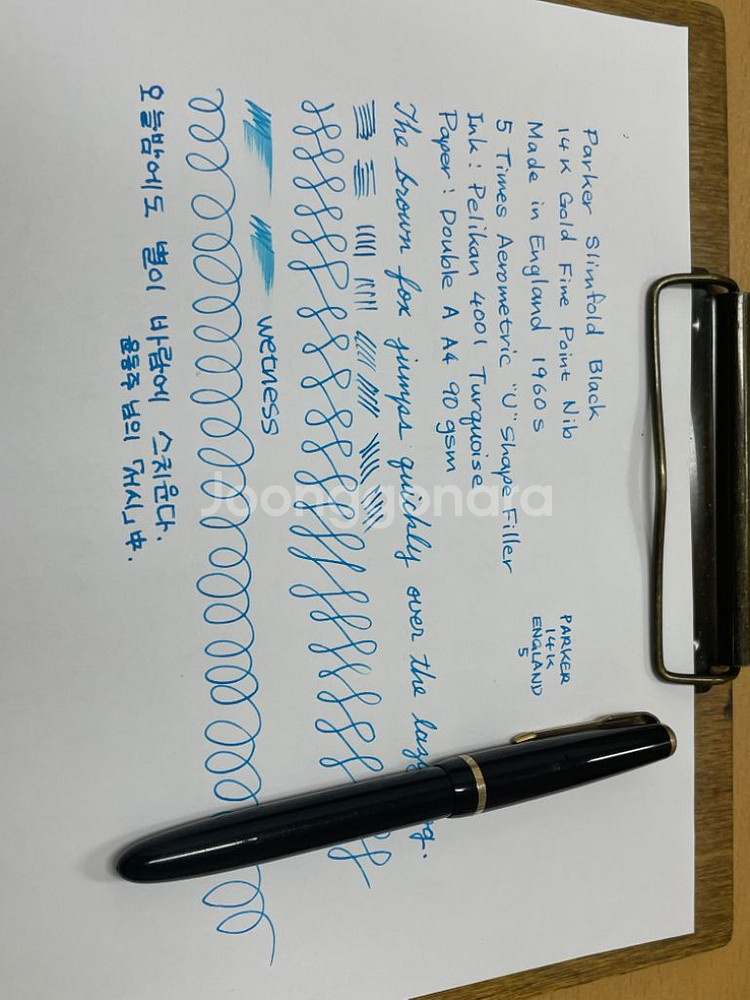 Parker Slimfold Black
14K Gold Fine Point Nib
Made in England 1960s
5 Times Aerometric "U" Shape Filler
Ink : Pelikan 4001 Turquoise
Paper : Double A A4 90 gsm
PARKER
14K
ENGLAND
5
The brown fox jumps quickly over the lazy
wetness
오늘밤에도 별이 바람에 스치운다.
윤동주 님의 「서시」 中.
Joonggonara